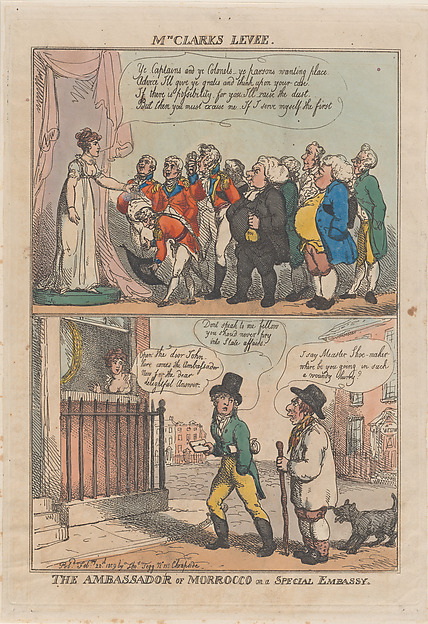 Mrs CLARKS LEVEE.
Ye Captains and ye Colonels_ye parsons wanting place
Advice I'll give ye gratis and think upon your case
If there is possibility for you I'll raise the dust
But then you must excuse me If I serve myself the first
Open the door John
here comes the Ambassador
Now for the dear
delightful Answer.
Dont speak to me fellow
you should never pry
into State affairs
I say Measter Shoe-maker
where be you going in such
a woundy Hurry?
Pubd Feby 22d 1809 by Thos Tegg No 111 Cheapside
THE AMBASSADOR OF MORROCCO on a SPECIAL EMBASSY.